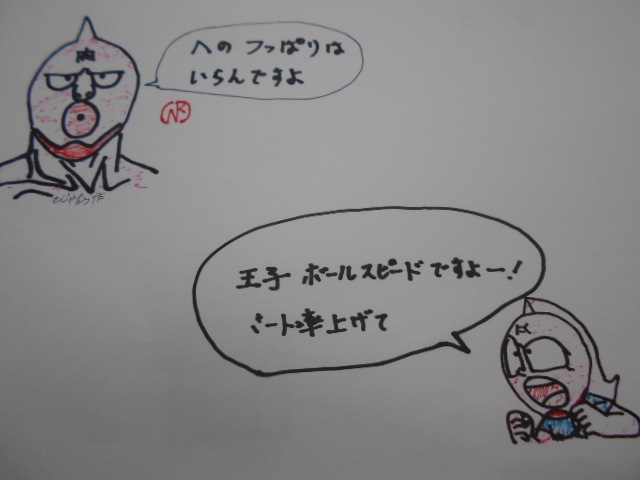 肉
への つっぱりは
いらんですよ
王子 ボールスピードですよー!
ミート率上げて